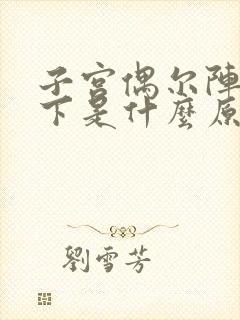 子宫偶尔陣
下是什麼原
劉雪芳